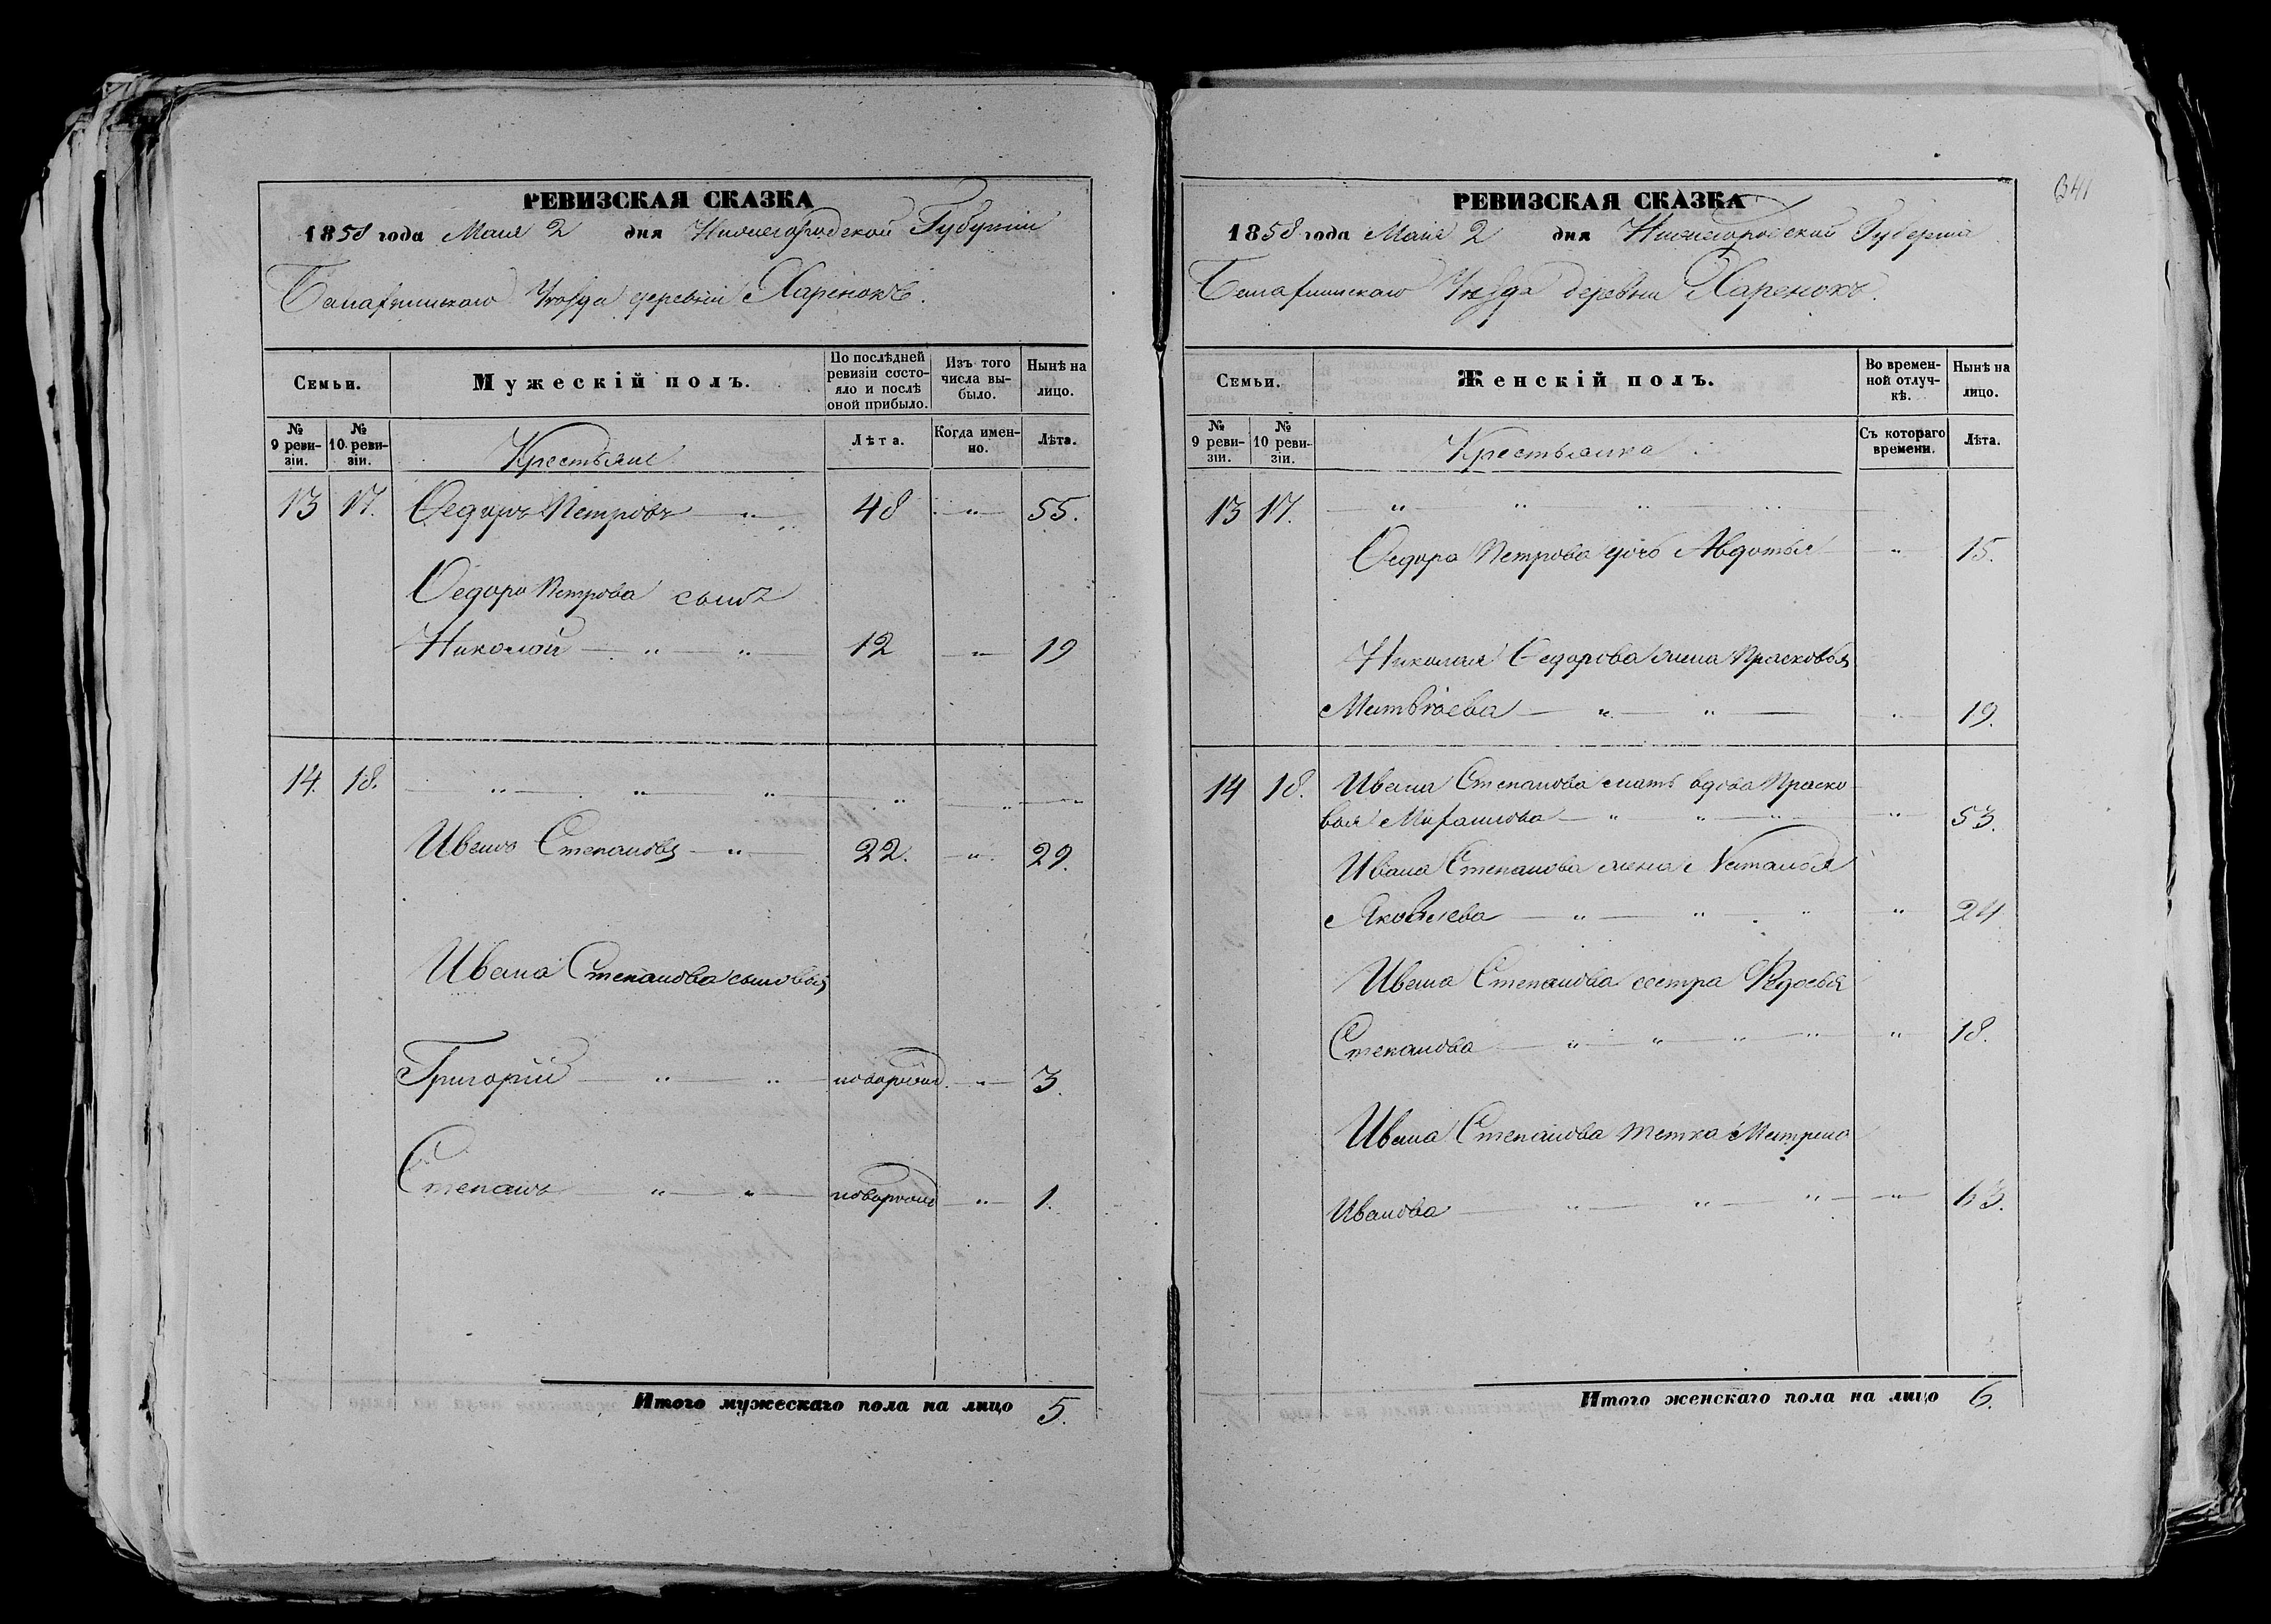 РЕВИЗСКАЯ СКАЗКА
1858 года Маия 2 дня Нижегородской Губернии
Балахнинскаго Уезда деревни Харенокъ.
Семьи.
Мужескій полъ.
По послѣдней ревизіи состояло и послѣ оной прибыло.
Изъ того числа выбыло.
Нынѣ на лицо.
№ 9 ревизіи.
№ 10 ревизіи.
Крестьяне
Лѣта.
Когда именно.
Лѣта.
13 17. Ѳедоръ Петровъ — " — 48 — " — 55.
Ѳедора Петрова сынъ
Николай — " — " — 12 — " — 19
14. 18. — " — " — " — " — " —
Иванъ Степановъ — " — 22. — " — 29.
Ивана Степанова сыновья
Григорій — " — " — новорожд. — " — 3.
Степанъ — " — " — новорожд — " — 1.
Итого мужескаго пола на лицо 5.
341
РЕВИЗСКАЯ СКАЗКА
1858 года Маия 2 дня Нижегородской Губерніи
Балахнинскаго Уезда деревни Харенокъ.
Семьи.
Женскій полъ.
Во временной отлучкѣ.
Нынѣ на лицо.
№ 9 ревизіи.
№ 10 ревизіи.
Крестьянка
Съ котораго времени.
Лѣта.
13 17. — " — " — " — " —
Ѳедора Петрова дочь Авдотья — " — 15.
Николая Ѳедорова жена Прасковья
Матвѣева — " — " — " — 19.
14 18. Ивана Степанова мать вдова Праско
вья — " — " — " — " — 53.
Ивана Степанова жена Наталья
Яковлева — " — " — " — " — 24.
Ивана Степанова сестра Ѳедосья
Степанова — " — " — " — " — " — 18.
Ивана Степанова тетка Матрена
Иванова — " — " — " — " — 63.
Итого женскаго пола на лицо 6.